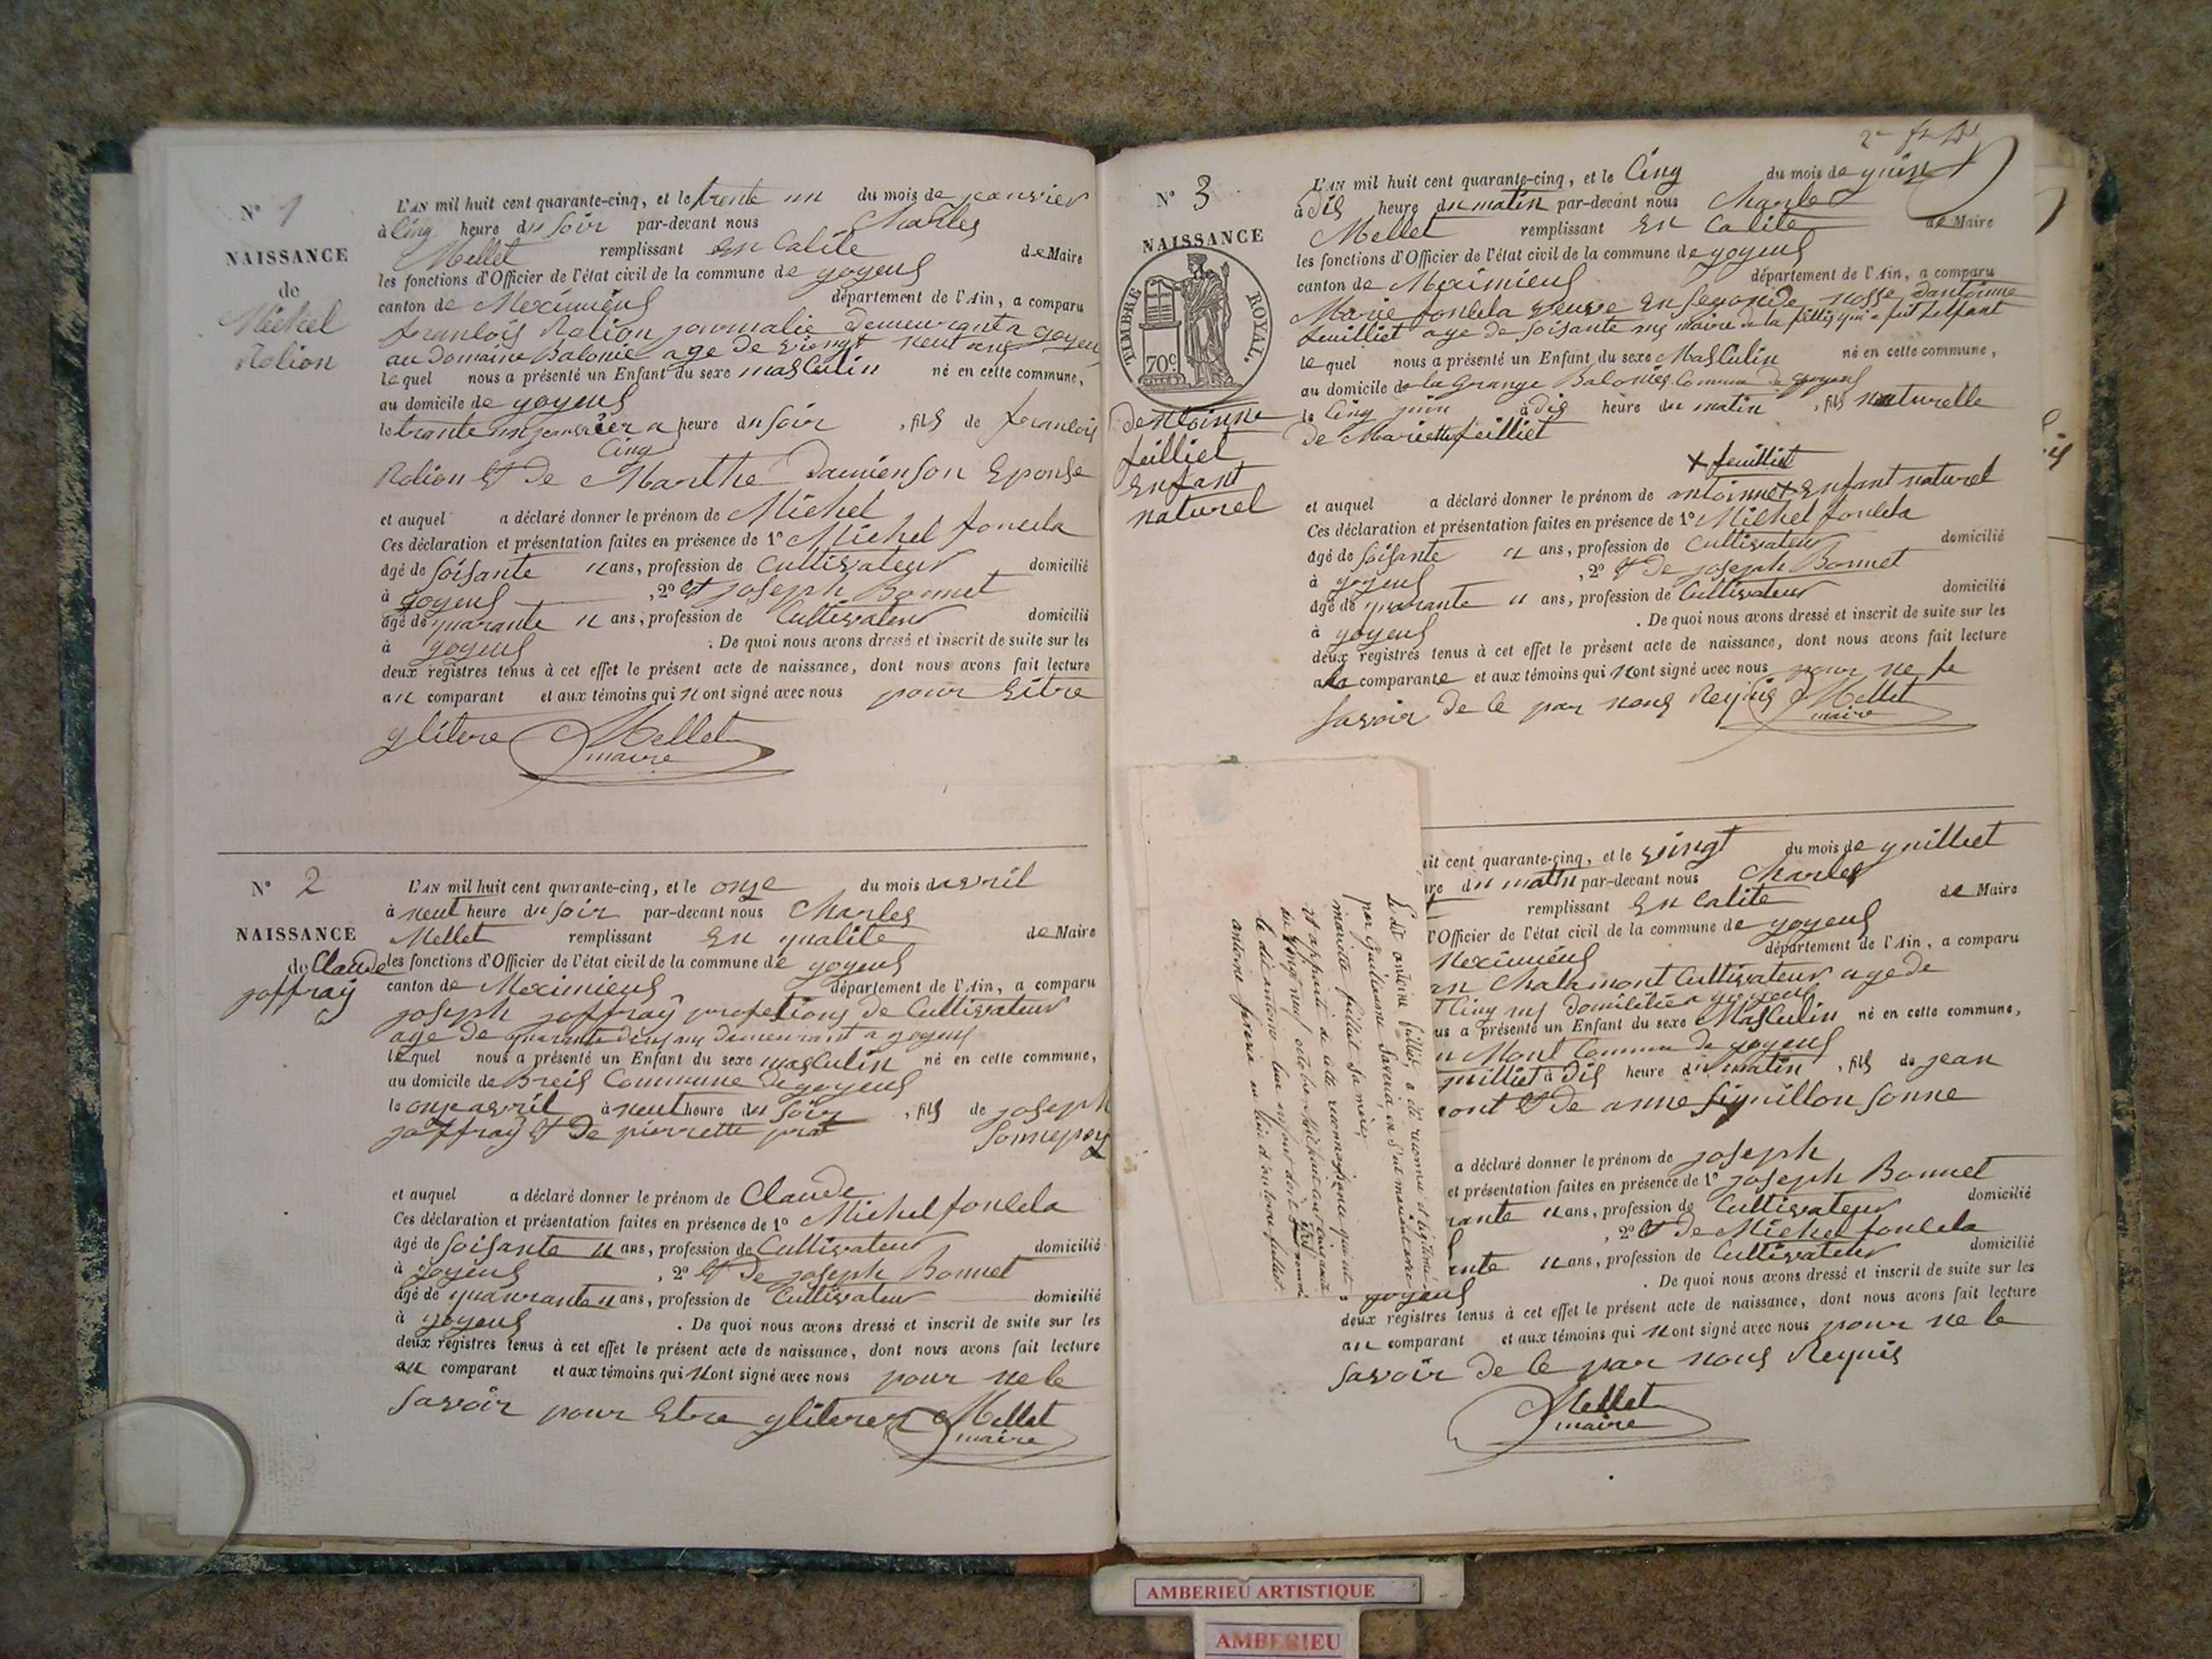 N° 1
NAISSANCE
de
Michel
Rolion
L'AN mil huit cent quarante-cinq, et le trente un du mois de jeanvier
à Cinq heure du Soir par-devant nous Charles
Mellet remplissant en Calite de Maire
les fonctions d'Officier de l'état civil de la commune de joyeus
canton de Meximieus département de l'Ain, a comparu
francois Rolion journalie demeurant a joyeu
au domaine Balonie age de viengt neuf ans
lequel nous a présenté un Enfant du sexe masculin né en cette commune,
au domicile de joyeus
le trante un jeanvier a Cinq heure du soir, fils de francois
Rolion et de Marthe Damienson Epouse
et auquel a déclaré donner le prénom de Michel
Ces déclaration et présentation faites en présence de 1° Michel
âgé de soisante ans, profession de Cultivateur domicilié
à joyeus, 2° et joseph Bonnet
âgé de quarante ans, profession de Cultivateur domicilié
à joyeus. De quoi nous avons dressé et inscrit de suite sur les
deux registres tenus à cet effet le présent acte de naissance, dont nous avons fait lecture
au comparant et aux témoins qui n'ont signé avec nous pour Eitre
ylitere Mellet
maire
N° 2
NAISSANCE
de Claude
joffray
L'AN mil huit cent quarante-cinq, et le onze du mois davril
à neuf heure du soir par-devant nous Charles
Mellet remplissant en qualite de Maire
les fonctions d'Officier de l'état civil de la commune de joyeus
canton de Meximieus département de l'Ain, a comparu
joseph joffray profetions de Cultivateur
age de quarante demeurant a joyeus
lequel nous a présenté un Enfant du sexe masculin né en cette commune,
au domicile de Breis Commune de joyeus
le onze avril à neuf heure du soir, fils de joseph
joffray et de pierrette prat
et auquel a déclaré donner le prénom de Claude
Ces déclaration et présentation faites en présence de 1° Michel
âgé de soisante ans, profession de Cultivateur domicilié
à joyeus, 2° et de joseph Bonnet
âgé de quarante ans, profession de Cultivateur domicilié
à joyeus. De quoi nous avons dressé et inscrit de suite sur les
deux registres tenus à cet effet le présent acte de naissance, dont nous avons fait lecture
au comparant et aux témoins qui n'ont signé avec nous pour ne le
savoir pour Etre yliterer Mellet
maire
N° 3
NAISSANCE
TIMBRE ROYAL.
70c
feilliet
Enfant
naturel
L'AN mil huit cent quarante-cinq, et le Cinq du mois de juin
à dis heure du matin par-devant nous Charle
Mellet remplissant En Calite de Maire
les fonctions d'Officier de l'état civil de la commune de joyeus
canton de Meximieus département de l'Ain, a comparu
Marie veuve En segonde nosse dantoinne
feuilliet age de soisante
lequel nous a présenté un Enfant du sexe Masculin né en cette commune,
au domicile de la Grange Balonies Commune de joyeus
le Cinq juin à dis heure du matin, fils naturelle
De Mariette feilliet
+ feuilliet
et auquel a déclaré donner le prénom de antoinne + Enfant naturel
Ces déclaration et présentation faites en présence de 1° Michel
âgé de soisante ans, profession de Cultivateur domicilié
à joyeus, 2° et de joseph Bonnet
âgé de quarante ans, profession de Cultivateur domicilié
à joyeus. De quoi nous avons dressé et inscrit de suite sur les
deux registres tenus à cet effet le présent acte de naissance, dont nous avons fait lecture
a la comparante et aux témoins qui n'ont signé avec nous pour ne le
savoir de ce par nous Requis Mellet
maire
cent quarante-cinq, et le vingt du mois de juilliet
du matin par-devant nous Charles
remplissant En Calite de Maire
l'Officier de l'état civil de la commune de joyeus
Meximieus département de l'Ain, a comparu
Chalamont Cultivateur age de
Cinq ans domicilié a joyeus
a présenté un Enfant du sexe Masculin né en cette commune,
Mont Commune de joyeus
à dis heure du matin, fils de jean
et de anne
a déclaré donner le prénom de joseph
et présentation faites en présence de 1° joseph Bonnet
ans, profession de Cultivateur domicilié
, 2° et de Michel
ans, profession de Cultivateur domicilié
joyeus. De quoi nous avons dressé et inscrit de suite sur les
deux registres tenus à cet effet le présent acte de naissance, dont nous avons fait lecture
au comparant et aux témoins qui n'ont signé avec nous pour ne le
savoir de ce par nous Requis
Mellet
maire
Le dit antoine a été reconnu et légitimé
par Guillaume
mariette sa mère,
AMBERIEU ARTISTIQUE
AMBERIEU